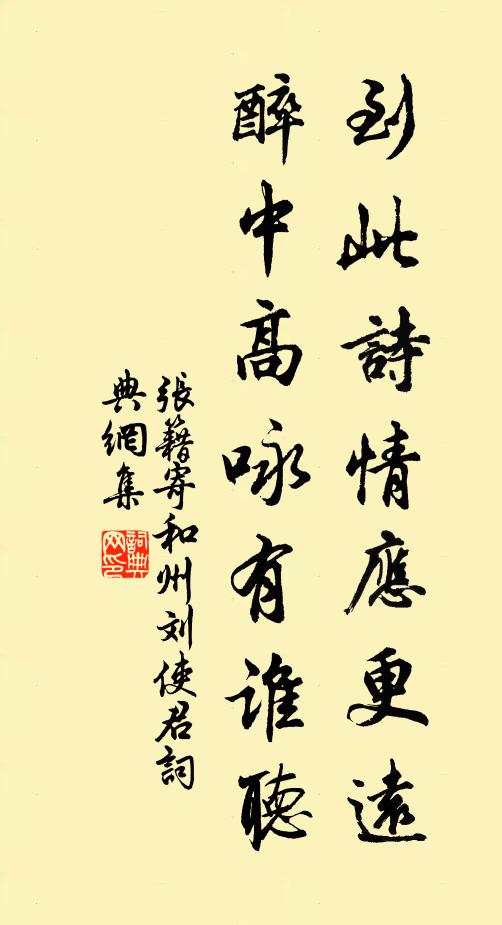 到此詩情應更遠
醉中高咏有誰聽
張籍寄和州刘使君詞
典網集
詞典
网印